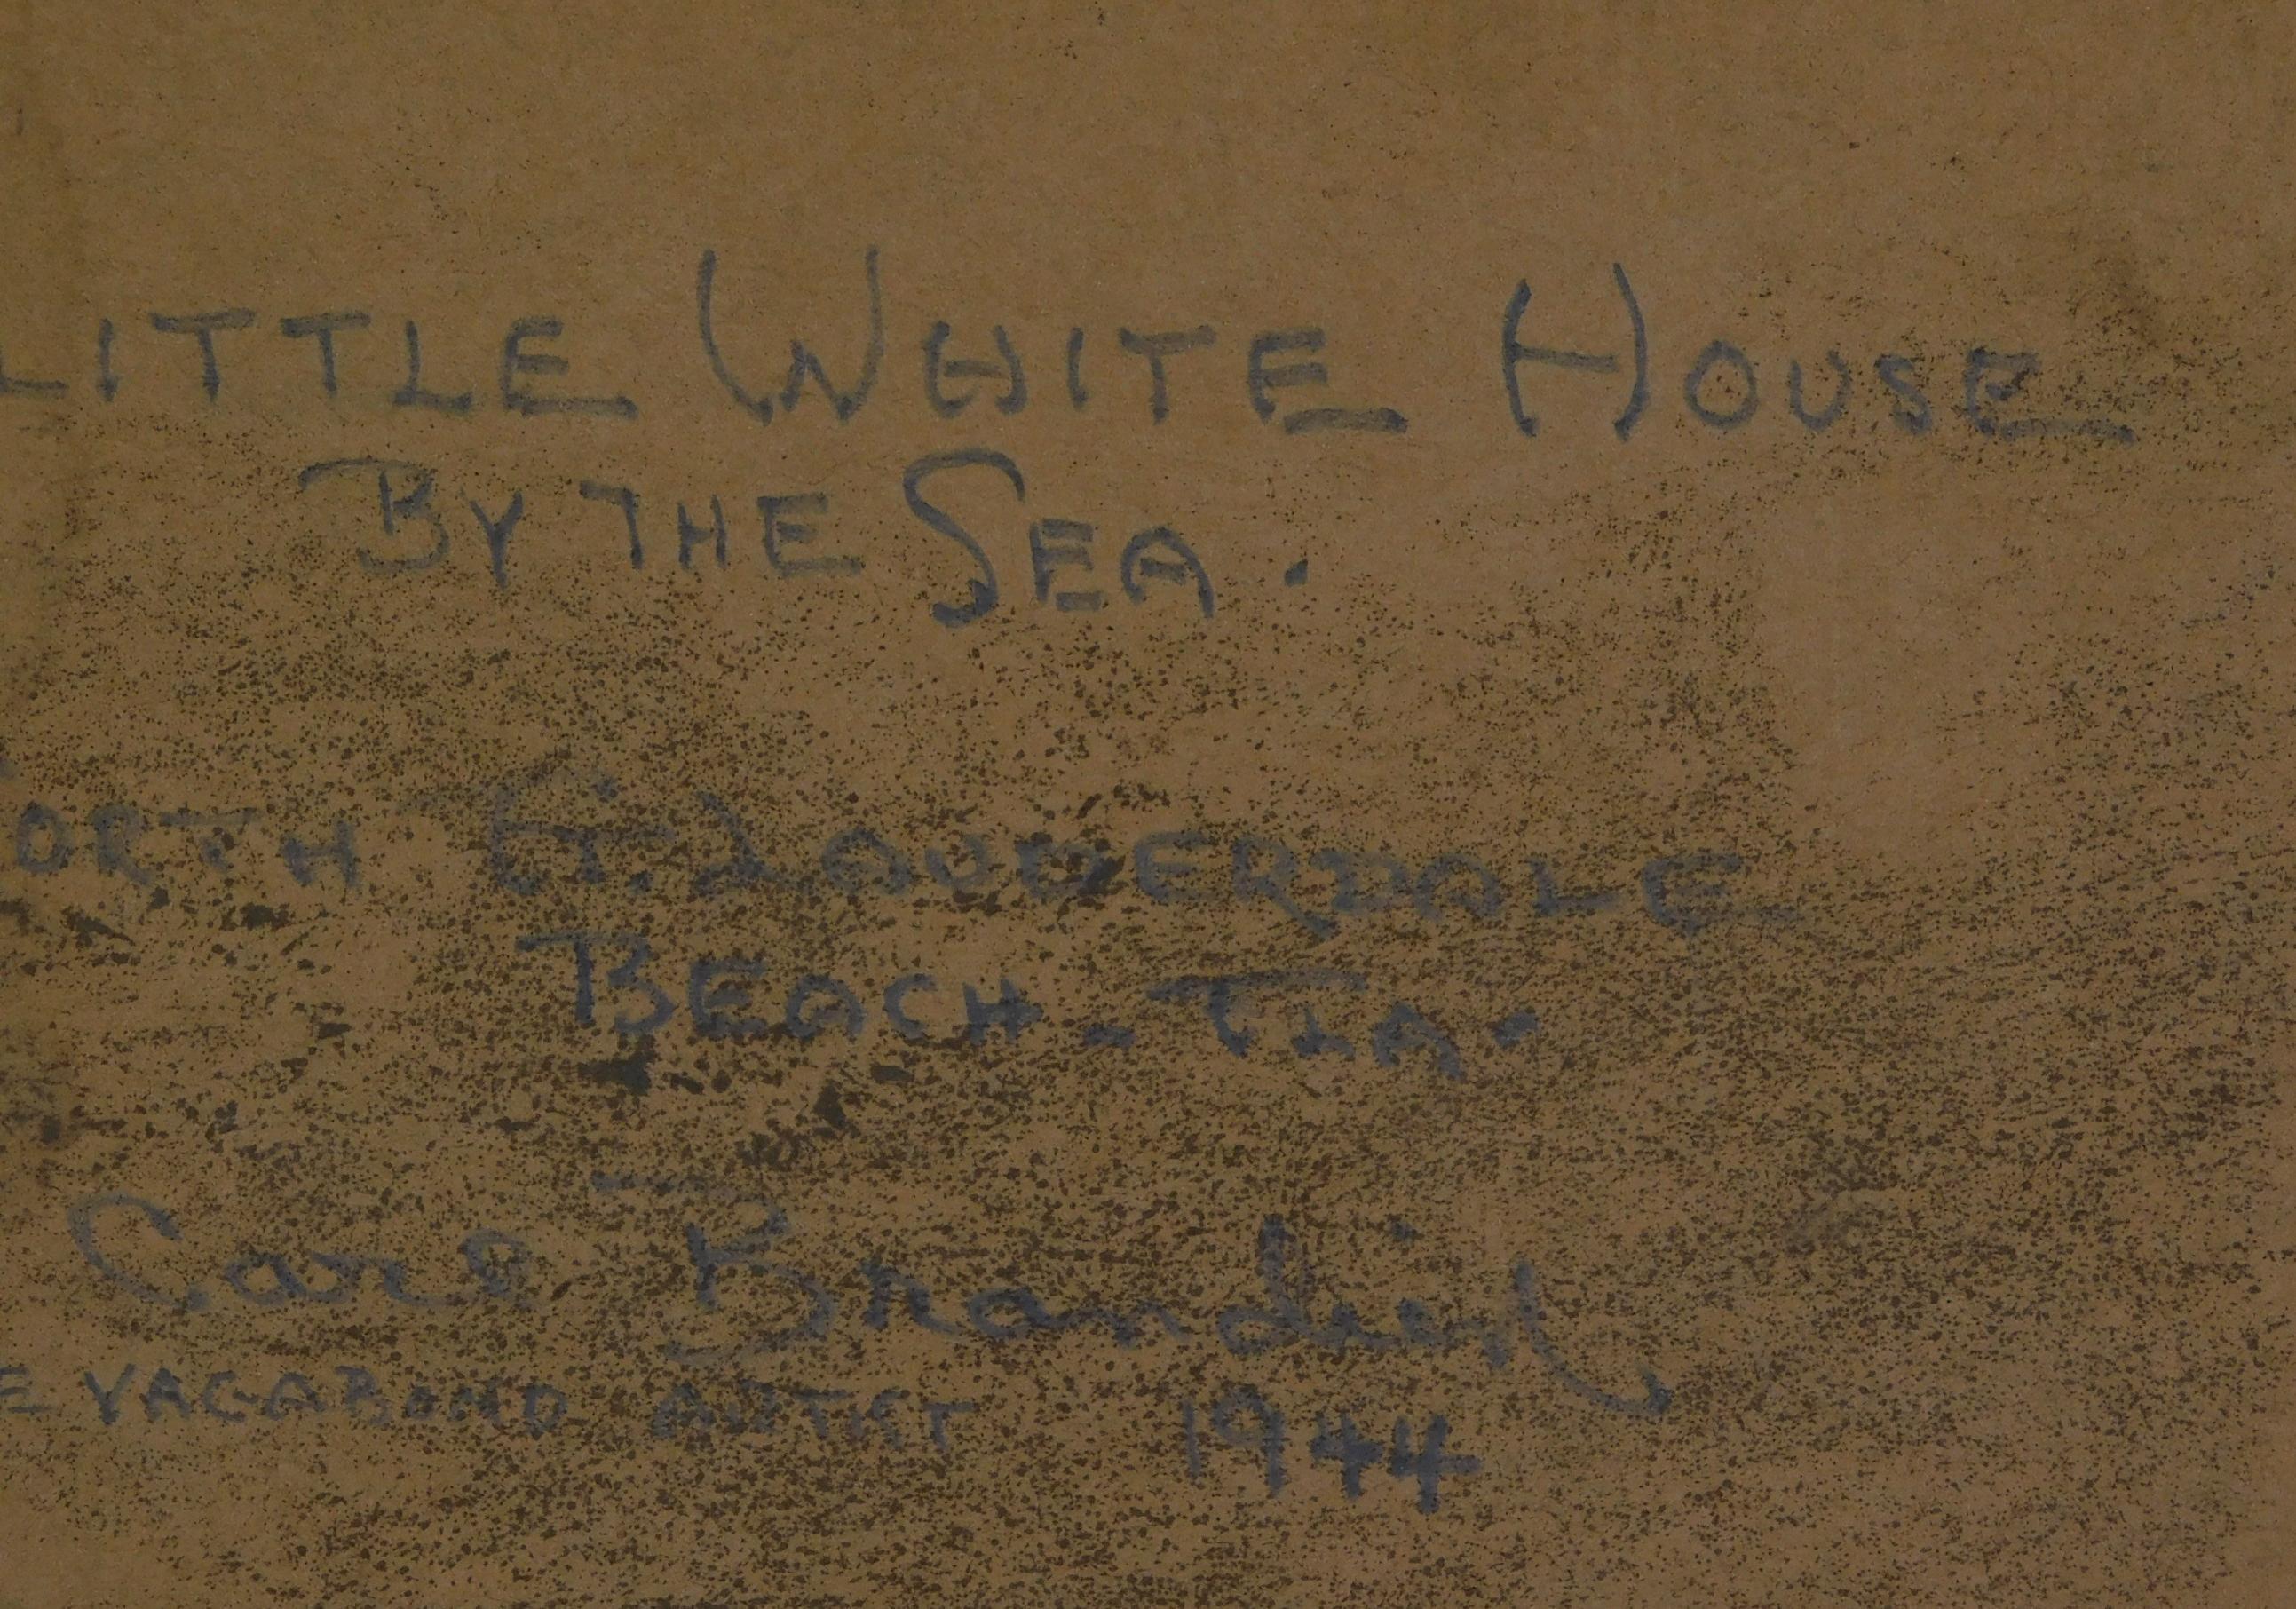 LITTLE WHITE HOUSE
BY THE SEA.
ORTH FT. LAUDERDALE
BEACH - FLA.
Carl Brandien
E VAGABOND ARTIST 1944